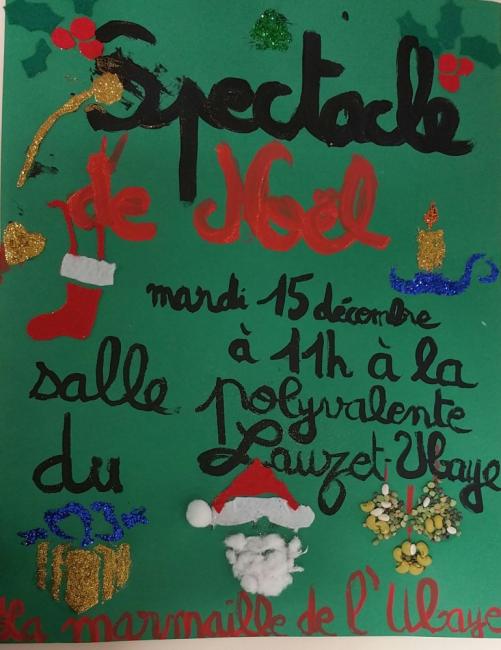 Spectacle
de Noël
mardi 15 décembre
à 11h à la
salle polyvalente
du Lauzet-Ubaye
La marmaille de l'Ubaye